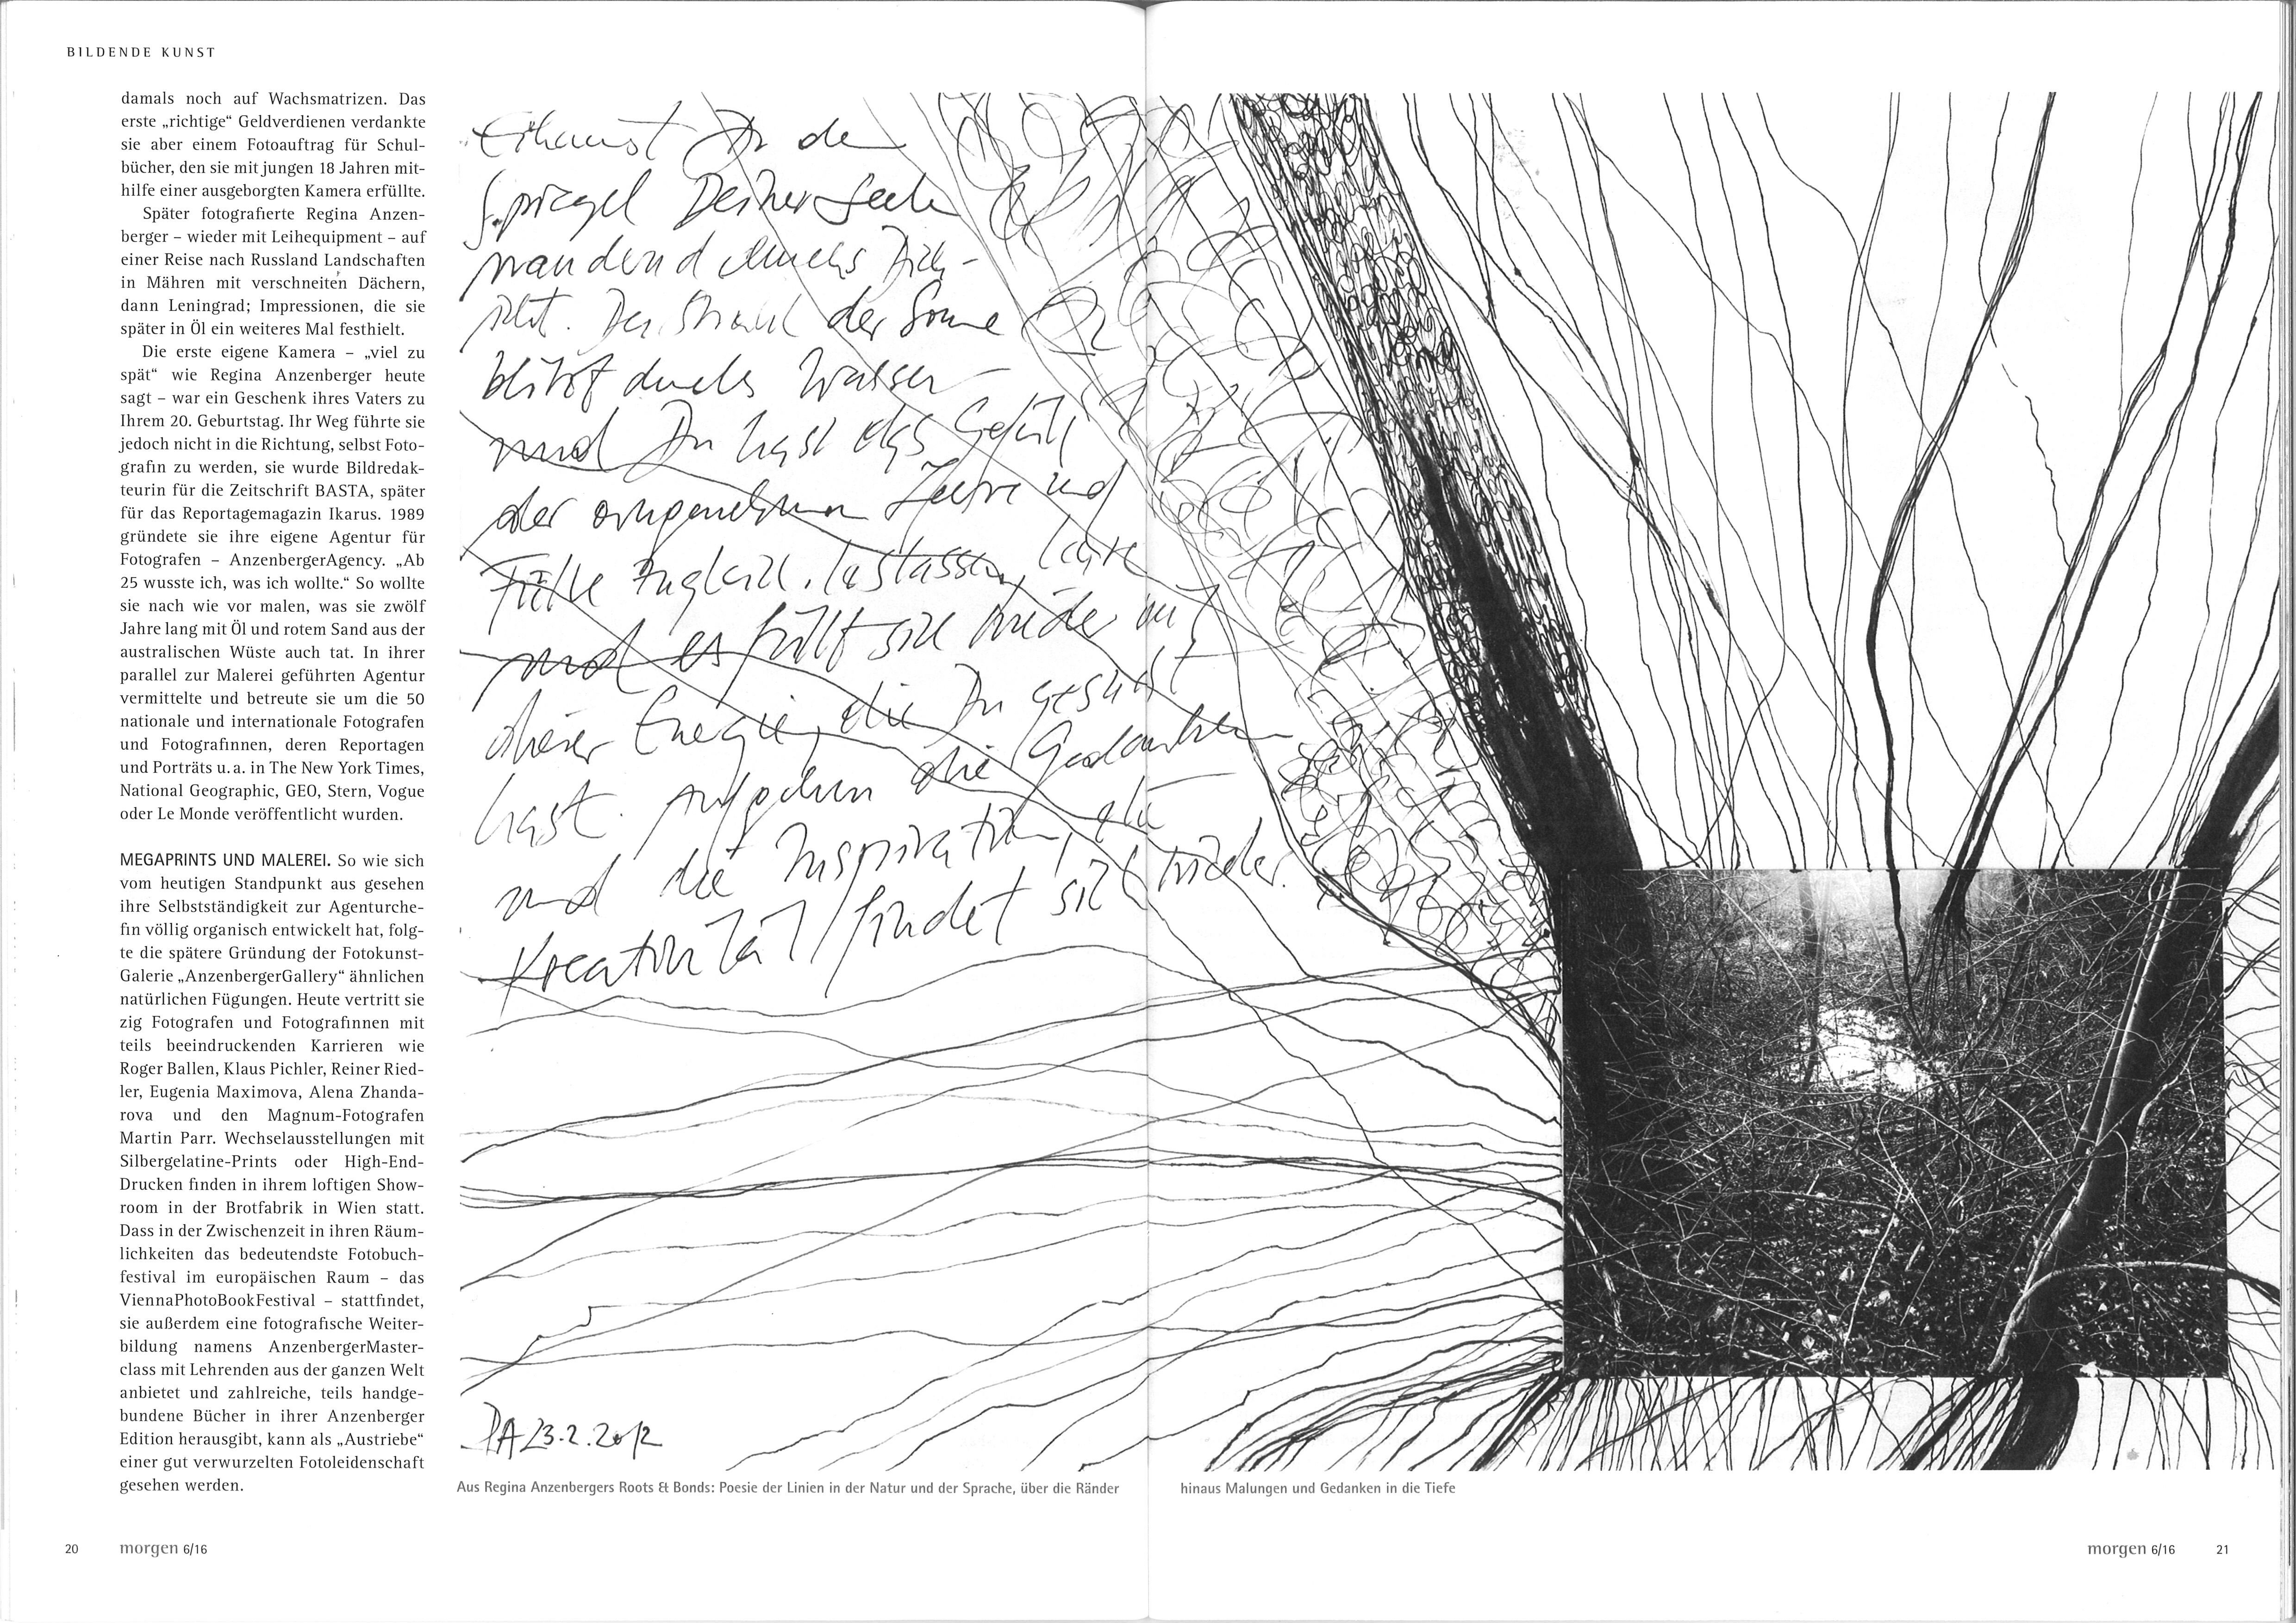 BILDENDE KUNST
damals noch auf Wachsmatrizen. Das
erste „richtige“ Geldverdienen verdankte
sie aber einem Fotoauftrag für Schul-
bücher, den sie mit jungen 18 Jahren mit-
hilfe einer ausgeborgten Kamera erfüllte.
Später fotografierte Regina Anzen-
berger – wieder mit Leihequipment – auf
einer Reise nach Russland Landschaften
in Mähren mit verschneiten Dächern,
dann Leningrad; Impressionen, die sie
später in Öl ein weiteres Mal festhielt.
Die erste eigene Kamera – „viel zu
spät“ wie Regina Anzenberger heute
sagt – war ein Geschenk ihres Vaters zu
Ihrem 20. Geburtstag. Ihr Weg führte sie
jedoch nicht in die Richtung, selbst Foto-
grafin zu werden, sie wurde Bildredak-
teurin für die Zeitschrift BASTA, später
für das Reportagemagazin Ikarus. 1989
gründete sie ihre eigene Agentur für
Fotografen – AnzenbergerAgency. „Ab
25 wusste ich, was ich wollte.“ So wollte
sie nach wie vor malen, was sie zwölf
Jahre lang mit Öl und rotem Sand aus der
australischen Wüste auch tat. In ihrer
parallel zur Malerei geführten Agentur
vermittelte und betreute sie um die 50
nationale und internationale Fotografen
und Fotografinnen, deren Reportagen
und Porträts u. a. in The New York Times,
National Geographic, GEO, Stern, Vogue
oder Le Monde veröffentlicht wurden.
MEGAPRINTS UND MALEREI. So wie sich
vom heutigen Standpunkt aus gesehen
ihre Selbstständigkeit zur Agenturche-
fin völlig organisch entwickelt hat, folg-
te die spätere Gründung der Fotokunst-
Galerie „AnzenbergerGallery“ ähnlichen
natürlichen Fügungen. Heute vertritt sie
zig Fotografen und Fotografinnen mit
teils beeindruckenden Karrieren wie
Roger Ballen, Klaus Pichler, Reiner Ried-
ler, Eugenia Maximova, Alena Zhanda-
rova und den Magnum-Fotografen
Martin Parr. Wechselausstellungen mit
Silbergelatine-Prints oder High-End-
Drucken finden in ihrem loftigen Show-
room in der Brotfabrik in Wien statt.
Dass in der Zwischenzeit in ihren Räum-
lichkeiten das bedeutendste Fotobuch-
festival im europäischen Raum – das
ViennaPhotoBookFestival – stattfindet,
sie außerdem eine fotografische Weiter-
bildung namens AnzenbergerMaster-
class mit Lehrenden aus der ganzen Welt
anbietet und zahlreiche, teils handge-
bundene Bücher in ihrer Anzenberger
Edition herausgibt, kann als „Austriebe“
einer gut verwurzelten Fotoleidenschaft
gesehen werden.
Du den
Spiegel Deiner Seele
wandernd durchs Dick-
icht. Der Strahl der Sonne
blitzt durchs Wasser
und Du hast das Gefühl
der angenehmen Leere und
Fülle zugleich. loslassen,
und es füllt sich wieder mit
dieser Energie, die Du gesucht
hast. Aufgehen die Gedanken
und die Inspiration, die
Kreativität findet sich wieder.
RA 23.2.2012
Aus Regina Anzenbergers Roots & Bonds: Poesie der Linien in der Natur und der Sprache, über die Ränder
hinaus Malungen und Gedanken in die Tiefe
20 morgen 6/16
morgen 6/16 21